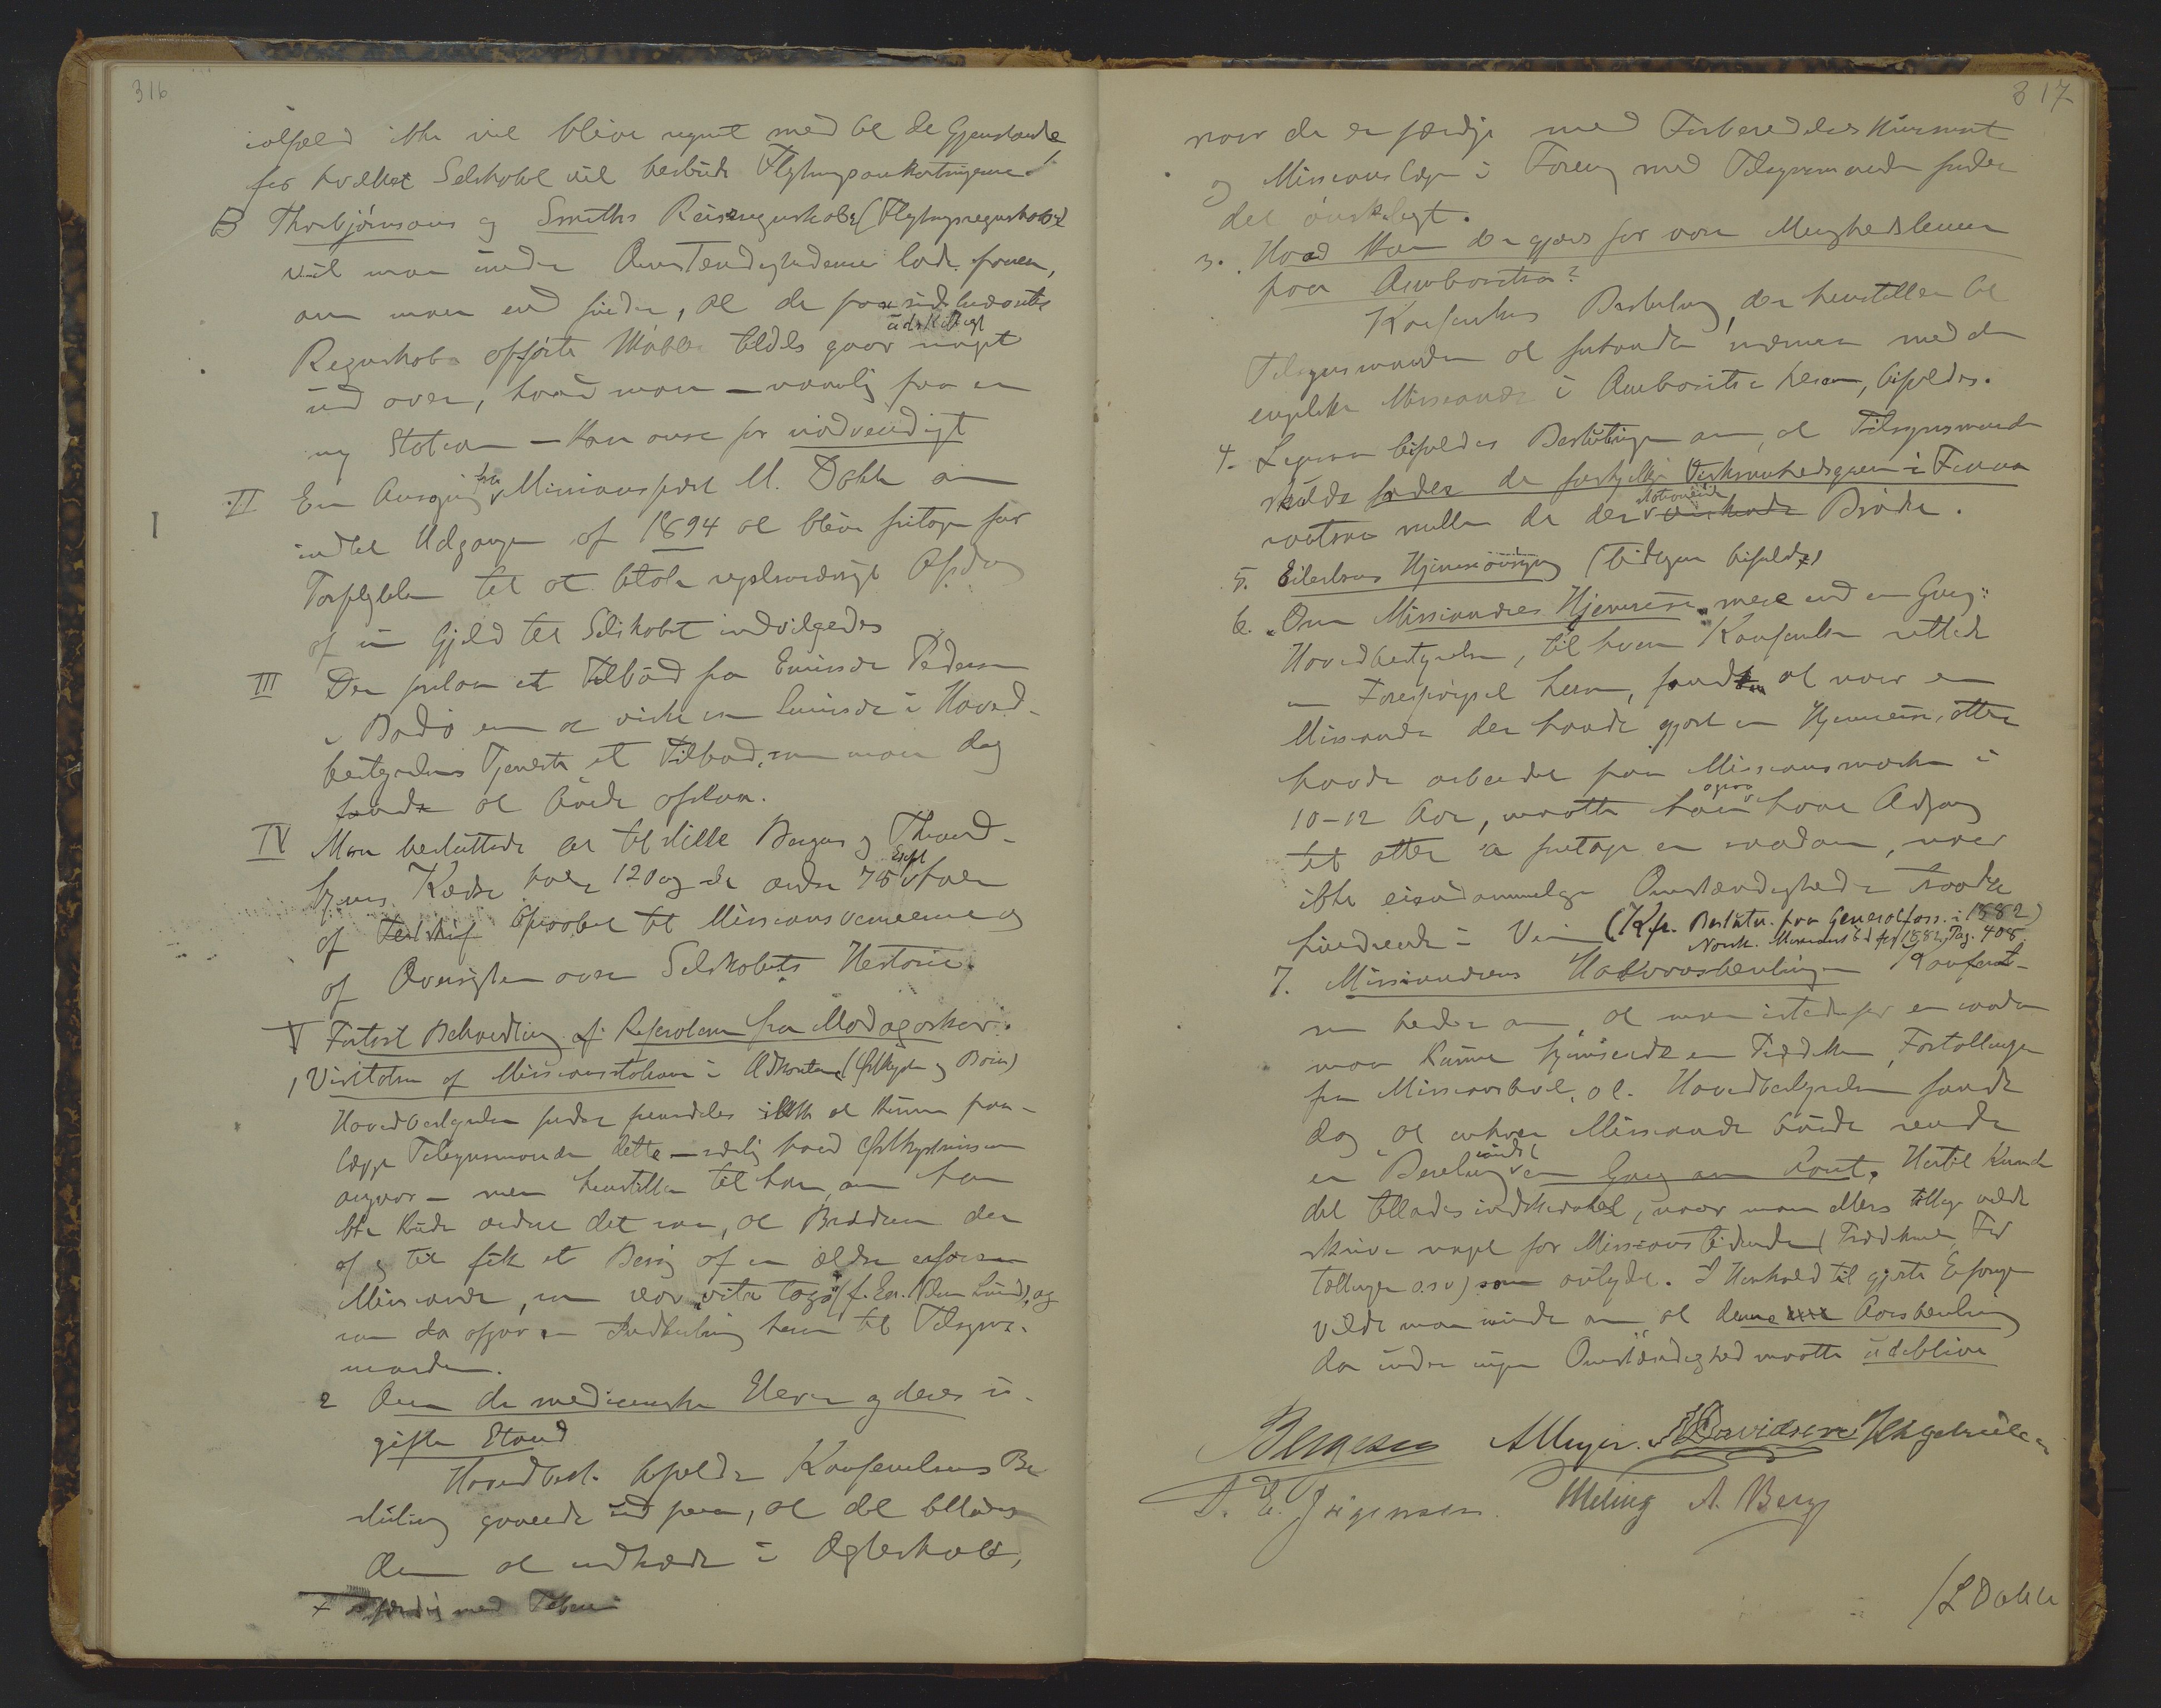 316
ialfald ikke vil blive regnet med til de Gjenstande
for hvilket Selskabet vil bestride Flytningsomkostningerne.
B Thorbjørnsens og Smiths Reiseregnskaber (Flytningsregnskaber)
vil man under Omstændighederne lade passere,
om man end finder, at de paa sidstnævntes
Regnskab opførte Møbler tildels gaar udskilligt noget
ud over, hvad man – navnlig paa en
ny Station – kan anse for nødvendigt
II En Ansøgning fra Missionsprest M. Dahle om
indtil Udgangen af 1894 at blive fritagen for
Forpligtelsen til at betale regelmæssigt Afdrag
af sin Gjæld til Selskabet indvilgedes
III Der forelaa et Tilbud fra Emissær Pedersen
i Bodø om at virke som Emissær i Hoved-
bestyrelsens Tjeneste et Tilbud, som man dog
fandt at burde afslaa.
IV Man besluttede at tilstille Bergens og Thrond-
hjems Kredse hver 120 og de andre 75 Expl hver
af Opraabet til Missionsvennerne og
af Oversigten over Selskabets Historie.
V Fortsat Behandling af Referaterne fra Madagaskar.
1, Visitatsen af Missionsstationerne i Udkanterne (Østkysten og Boina)
Hovedbestyrelsen finder fremdeles ikke at kunne paa-
lægge Tilsynsmanden dette – særlig hvad Østkystmissionen
angaar – men henstiller til ham, om han
ikke kunde ordne det saa, at Brødrene der
af og til fik et Besøg af en ældre erfaren
Missionær, som var "vita tago" (f. Ex. Vilen Lund), og
som da afgav en Indberetning herom til Tilsyns-
manden.
2 Om de medicinske Elever og deres u-
gifte Stand
Hovedbest. bifaldt Konferencens Be-
slutning gaaende ud paa, at det tillades
dem at indtræde i Ægteskab,
+ færdig med
317
naar de er færdige med Forberedelseskurset
og Missionslægen i Forening med Tilsynsmanden finder
det ønskeligt.
3. Hvad kan der gjøres for vore Menighedslemmer
paa Ambositra?
Konferencens Beslutning, der henstiller til
Tilsynsmanden at forhandle nærmere med den
engelske Missionær i Ambositra herom, bifaldes.
4. Ligesaa bifaldes Beslutningen om, at Tilsynsmanden
skulde fordele de forskjellige Virksomhedsgrene i Fianar
antsoa mellem de der stationerede Brødre.
5. Eilertsens Hjemreiseansøgning (tidligere bifaldt)
6. "Om Missionærers Hjemreise mere end en Gang":
Hovedbestyrelsen, til hvem Konferencen rettede
en Forespørgsel herom, fandt, at naar en
Missionær der havde gjort en Hjemreise, atter
havde arbeidet paa Missionsmarken i
10-12 Aar, maatte han ogsaa have Adgang
til atter at foretage en saadan, naar
ikke eiendommelige Omstændigheder skulde
hindrende i Veien (Kfr. Beslutn. paa Generalfors. i 1882)
Norsk. Missionstid. for 1882, Pag. 408
7. Missionærernes Halvaarsberetninger Konferen-
sen beder om, at man istedetfor en saadan
maa kunne hjemsende en Prædiken, Fortællinger
fra Missionslivet, ol. Hovedbestyrelsen fandt
dog, at enhver Missionær burde sende
en Beretning mindst en Gang om Aaret. Hertil kunde
det tillades indskrænket, naar man ellers tillige vilde
skrive noget for Missionstidende (Prædikener, For
tællinger o.s.v.) som antydet. I Henhold til gjorte Erfaringer
vilde man minde om, at denne Aarsberetning
da under ingen Omstændighed maatte udeblive
Bergesen AMeyer. Davidsen
D. E. Jørgensen. Meling A. Berg
/L Dahle